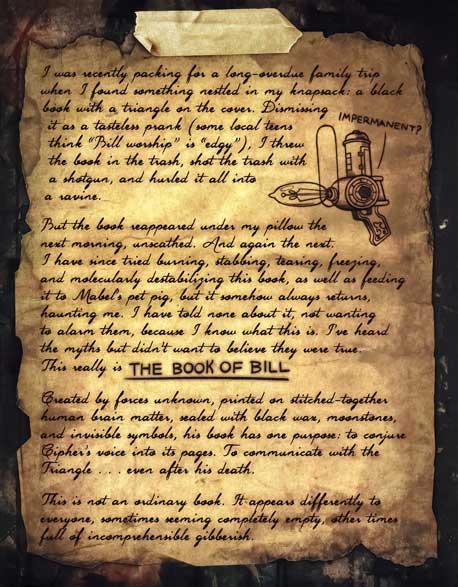 I was recently packing for a long-overdue family trip
when I found something nestled in my knapsack: a black
book with a triangle on the cover. Dismissing
it as a tasteless prank (some local teens
think "Bill worship" is "edgy"), I threw
the book in the trash, shot the trash with
a shotgun, and hurled it all into
a ravine.
IMPERMANENT?
But the book reappeared under my pillow the
next morning, unscathed. And again the next.
I have since tried burning, stabbing, tearing, freezing,
and molecularly destabilizing this book, as well as feeding
it to Mabel's pet pig, but it somehow always returns,
haunting me. I have told none about it, not wanting
to alarm them, because I know what this is. I've heard
the myths but didn't want to believe they were true.
This really is THE BOOK OF BILL
Created by forces unknown, printed on stitched-together
human brain matter, sealed with black wax, moonstones,
and invisible symbols, his book has one purpose: to conjure
Cipher's voice into its pages. To communicate with the
Triangle . . . even after his death.
This is not an ordinary book. It appears differently to
everyone, sometimes seeming completely empty, other times
full of incomprehensible gibberish.